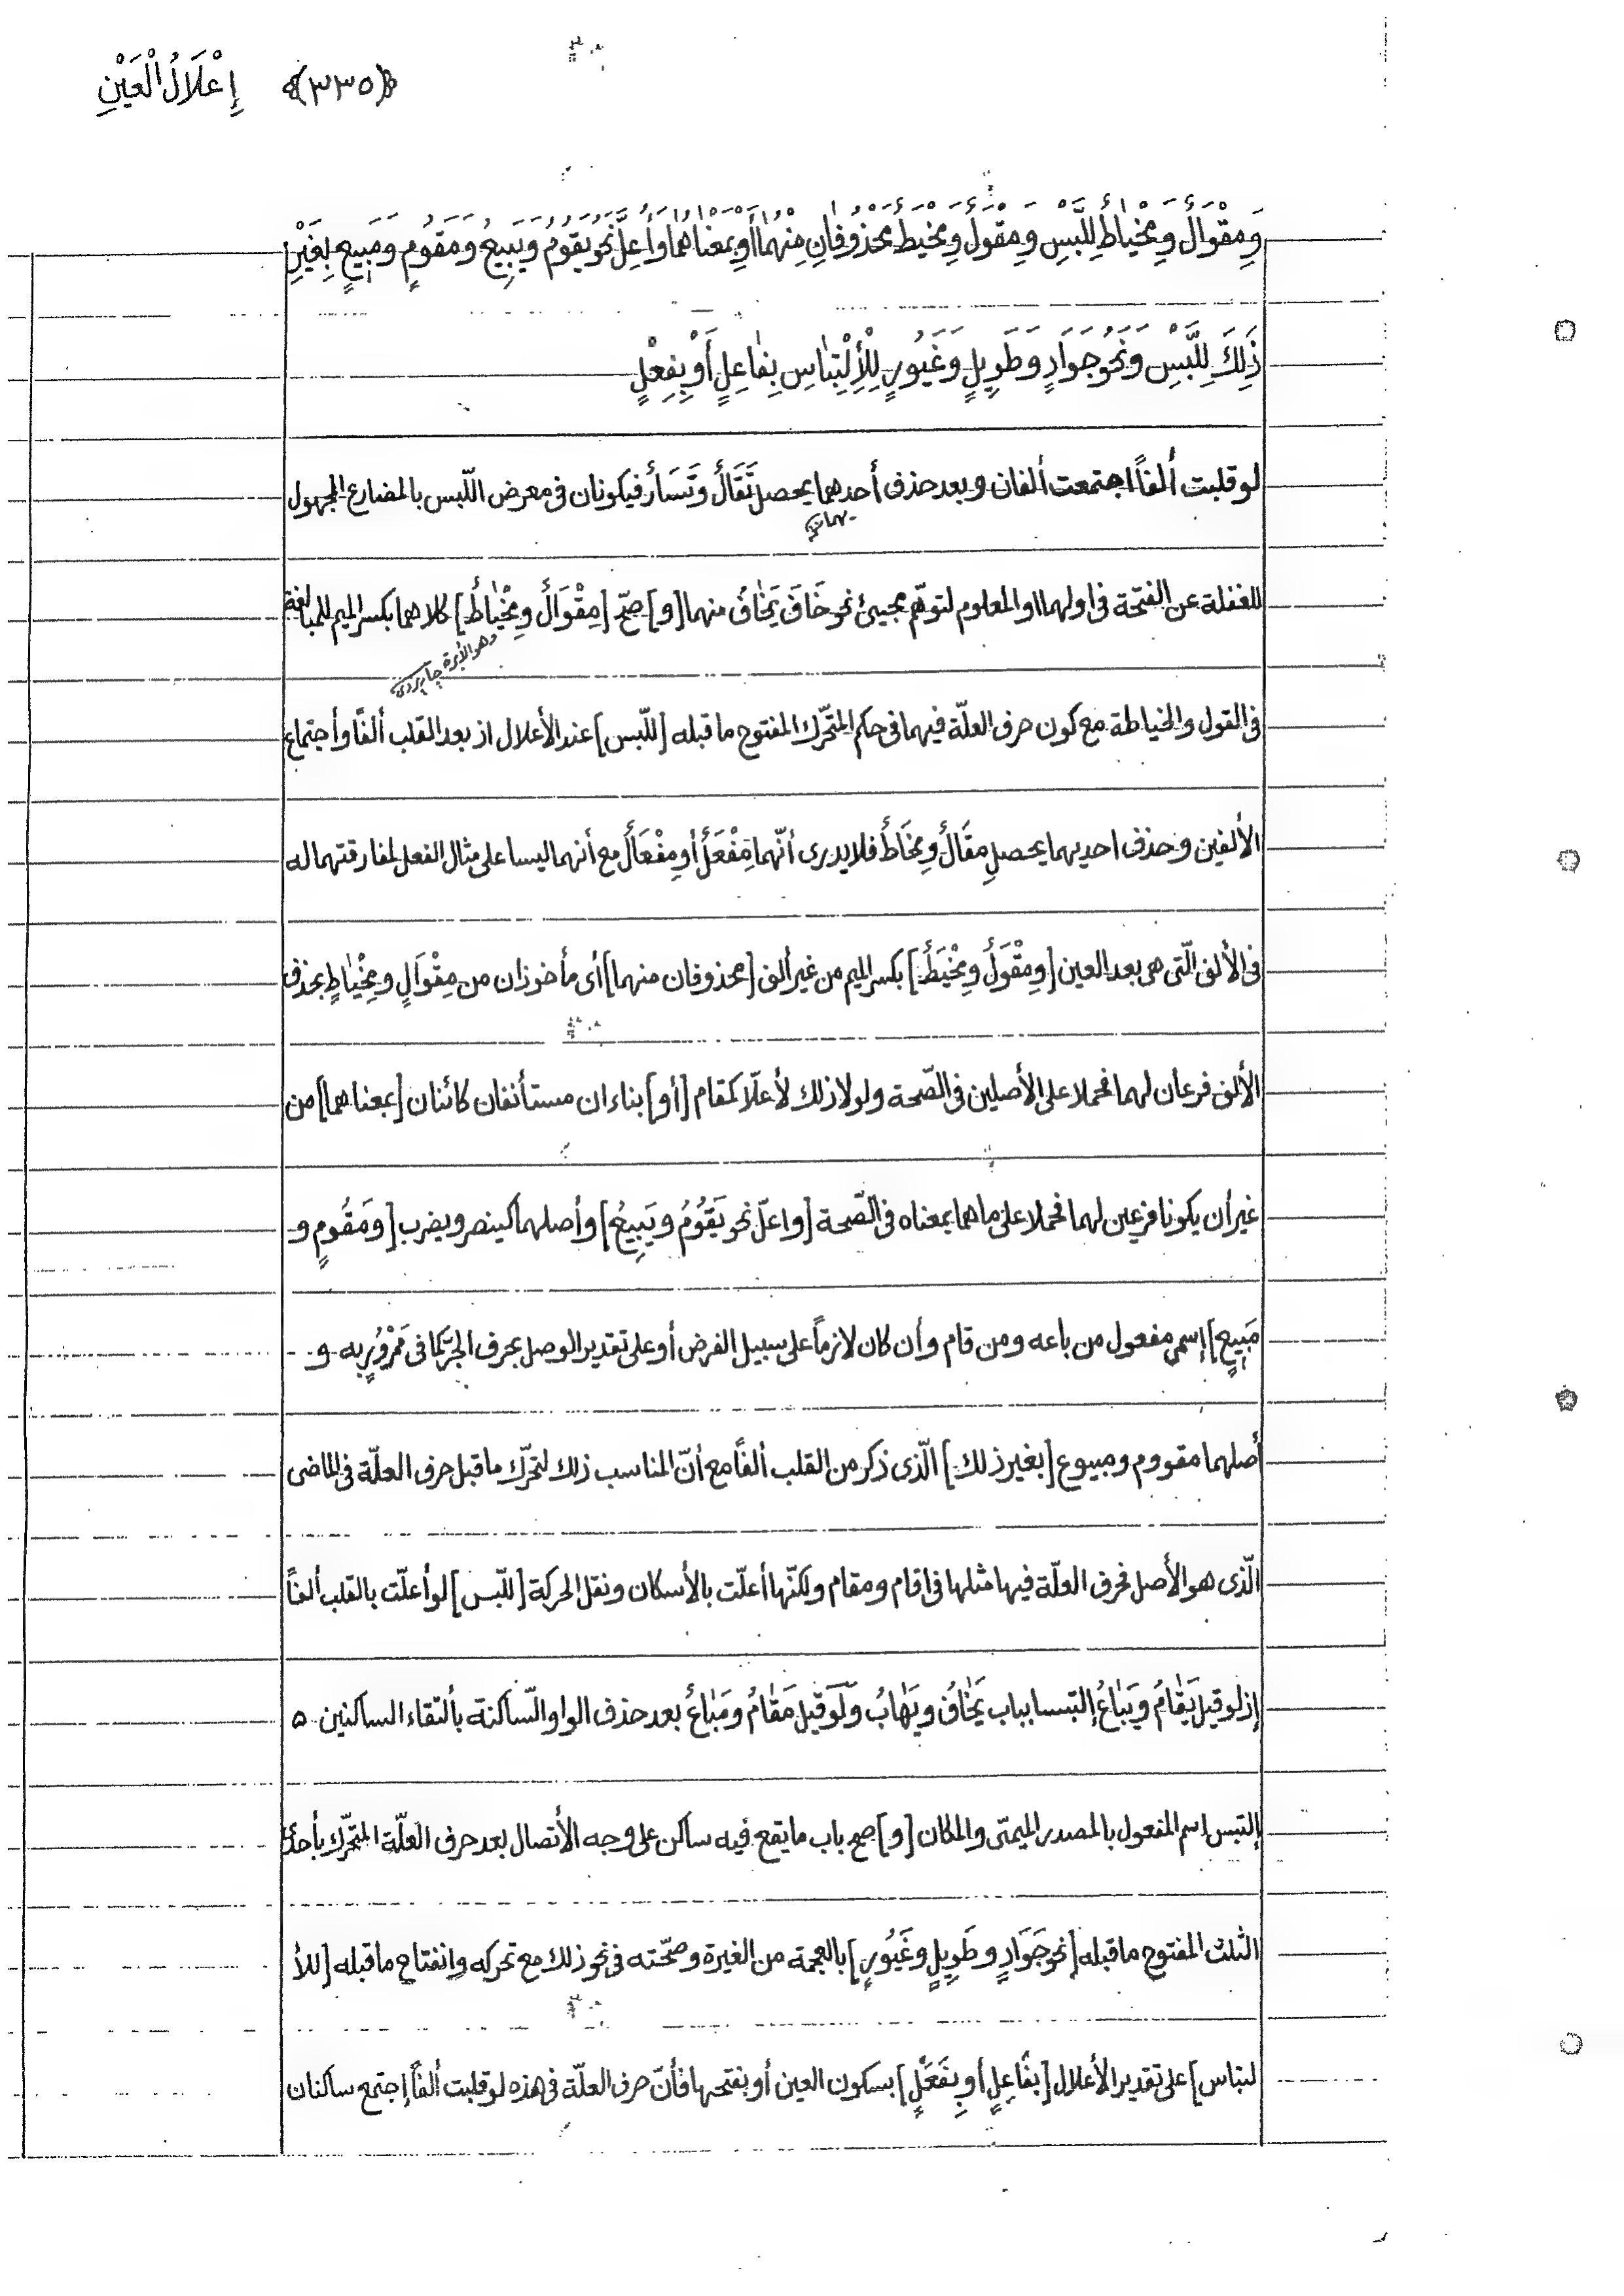 إِعْلَالُ الْعَيْنِ ﴿٣٣٥﴾
وَمِقْوَالٌ وَمِخْيَاطٌ لِلَّبْسِ وَمِقْوَلٌ وَمِخْيَطٌ مَحْذُوفَانِ مِنْهُمَا أَوْ بِمَعْنَاهُمَا وَأُعِلَّ نَحْوُ يَقُومُ وَيَبِيعُ وَمَقُومٍ وَمَبِيعٍ بِغَيْرِ
ذَلِكَ لِلَّبْسِ وَنَحْوُ جَوَادٍ وَطَوِيلٍ وَغَيُورٍ لِلْأِلْتِبَاسِ بِفَاعِلٍ أَوْ بِفِعْلٍ
لو قلبت ألفاً اجتمعت ألفان وبعد حذف أحدهما يحصل تَقَالٌ وتَسَارٌ فيكونان فى معرض اللّبس بالمضارع المجهول
للغفلة عن الفتحة فى اولهما او المعلوم لتوهّم مجيئ نحو خَافَ يَخَافُ منهما [و] صحّ [مِقْوَالٌ ومِخْيَاطٌ] كلاهما بكسر الميم للمبالغة
وهو الأبرة چاربردى
فى القول والخياطة مع كون حرف العلّة فيهما فى حكم المتحّرك المفتوح ما قبله [للّبس] عند الأعلال اذ بعد القلب ألفًا وأجتماع
الألفين وحذف احديهما يحصل مِقَالٌ ومِخَاطٌ فلا يدرى أنّهما مِفْعَلٌ أو مِفْعَالٌ مع أنهما ليسا على مثال الفعل لمفارقتهما له
فى الألف الّتى هى بعد العين [ومِقْوَلٌ ومِخْيَطٌ] بكسر الميم من غير ألف [محذوفان منهما] أى مأخوذان من مِقْوَالٍ ومِخْيَاطٍ بحذف
الألف فرعان لهما فحملا على الأصلين فى الصّحة ولولا ذلك لأعلّا كمقام [أو] بناءان مستأنفان كائنان [بمعناهما] من
غير أن يكونا فرعين لهما فحملا على ما هما بمعناه فى الصّحة [واعلّ نحو يَقُوُمُ ويَبِيعُ] وأصلهما كينصر ويضرب [ومَقُومٍ و
مَبِيعٍ] إسمى مفعول من باعه ومن قام وأن كان لازماً على سبيل الفرض أو على تقدير الوصل بحرف الجرّ كما فى مَمْرُورٍ به و
أصلهما مقووم ومبيوع [بغير ذلك] الّذى ذكر من القلب ألفًا مع أنّ المناسب ذلك لتحّرك ما قبل حرف العلّة فى الماضى
الّذى هو الأصل فحرف العلّة فيها مثلها فى اقام ومقام ولكنّها أعلّت بالأسكان ونقل الحركة [للّبس] لو أعلّت بالقلب ألفاً
إذ لو قيل يَقَامُ ويَبَاعُ إلتبسا بباب يَخَافُ ويَهَابُ ولَو قيل مَقَامٌ ومَبَاعٌ بعد حذف الواو السّاكنة بألتقاء الساكنين ه
إلتبس إسم المفعول بالمصدر الميمّى والمكان [و] صح باب ما يقع فيه ساكن على وجه الأتصال بعد حرف العلّة المتحّرك بأحدى
الثلث المفتوح ما قبله [نحو جَوَادٍ وطَوِيلٍ وغَيُورٍ] بالعجمة من الغيرة وصحّته فى نحو ذلك مع تحركه وانفتاح ما قبله [للأ
لتباس] على تقدير الأعلال [بفَاعِلٍ أو بِفَعَْلٍ] بسكون العين أو بفتحها فأنّ حرف العلّة فى هذه لو قلبت ألفاً إجتمع ساكنان